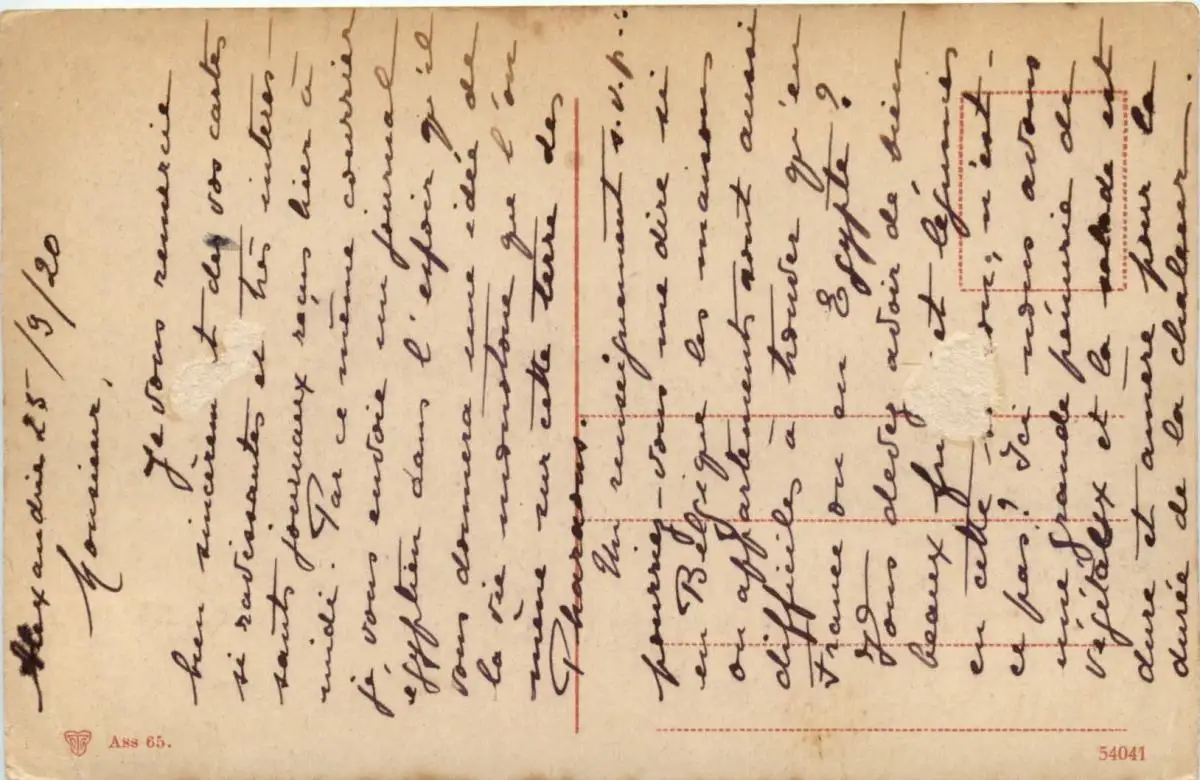 Alexandrie 25/9/20
Monsieur,
Je vous remercie
bien sincèrement des vos cartes
si ravissantes et très interes-
sants journaux reçus hier à
midi. Par ce même courrier
je vous envoie un journal
egyptien dans l'espoir qu'il
vous donnera une idée de
la vie monotone que l'on
mène sur cette terre des
Pharaons.
Un renseignement s.v.p.:
pourriez-vous me dire si
en Belgique les maisons
ou appartements sont aussi
difficiles à trouver qu'en
France ou en Egypte?
Vous devez avoir de bien
beaux fruits et légumes
en cette saison, n'est-
ce pas? Ici nous avons
une grande pénurie de
végétaux et la salade est
dure et amère pour la
durée de la chaleur.
Ass 65.
54041